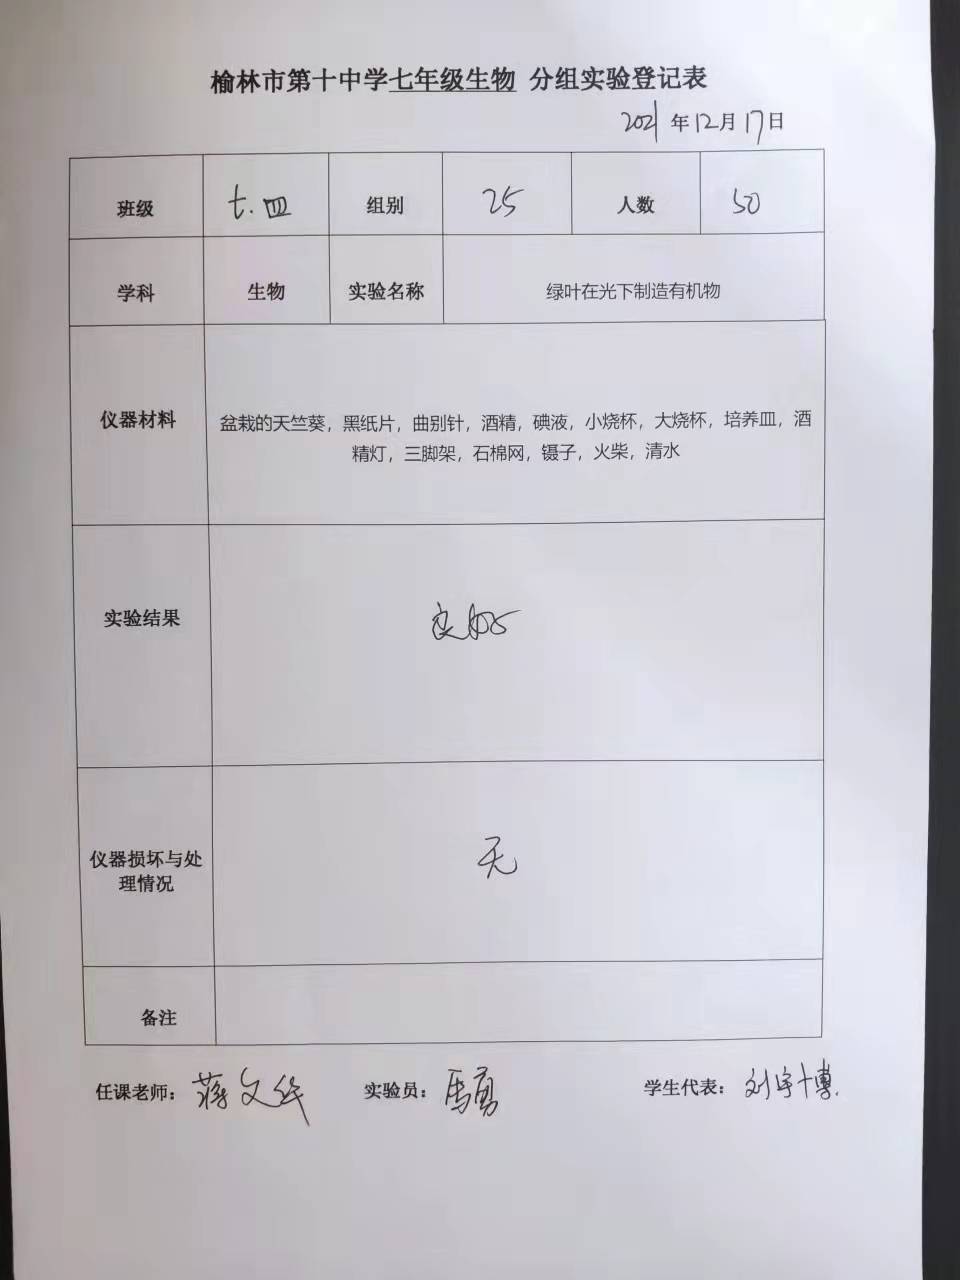 榆林市第十中学七年级生物 分组实验登记表
2021年12月17日
班级 七.四 组别 25 人数 50
学科 生物 实验名称 绿叶在光下制造有机物
仪器材料
盆栽的天竺葵，黑纸片，曲别针，酒精，碘液，小烧杯，大烧杯，培养皿，酒
精灯，三脚架，石棉网，镊子，火柴，清水
实验结果 良好
仪器损坏与处
理情况
无
备注
任课老师：蒋文华 实验员：马勇 学生代表：刘宇博